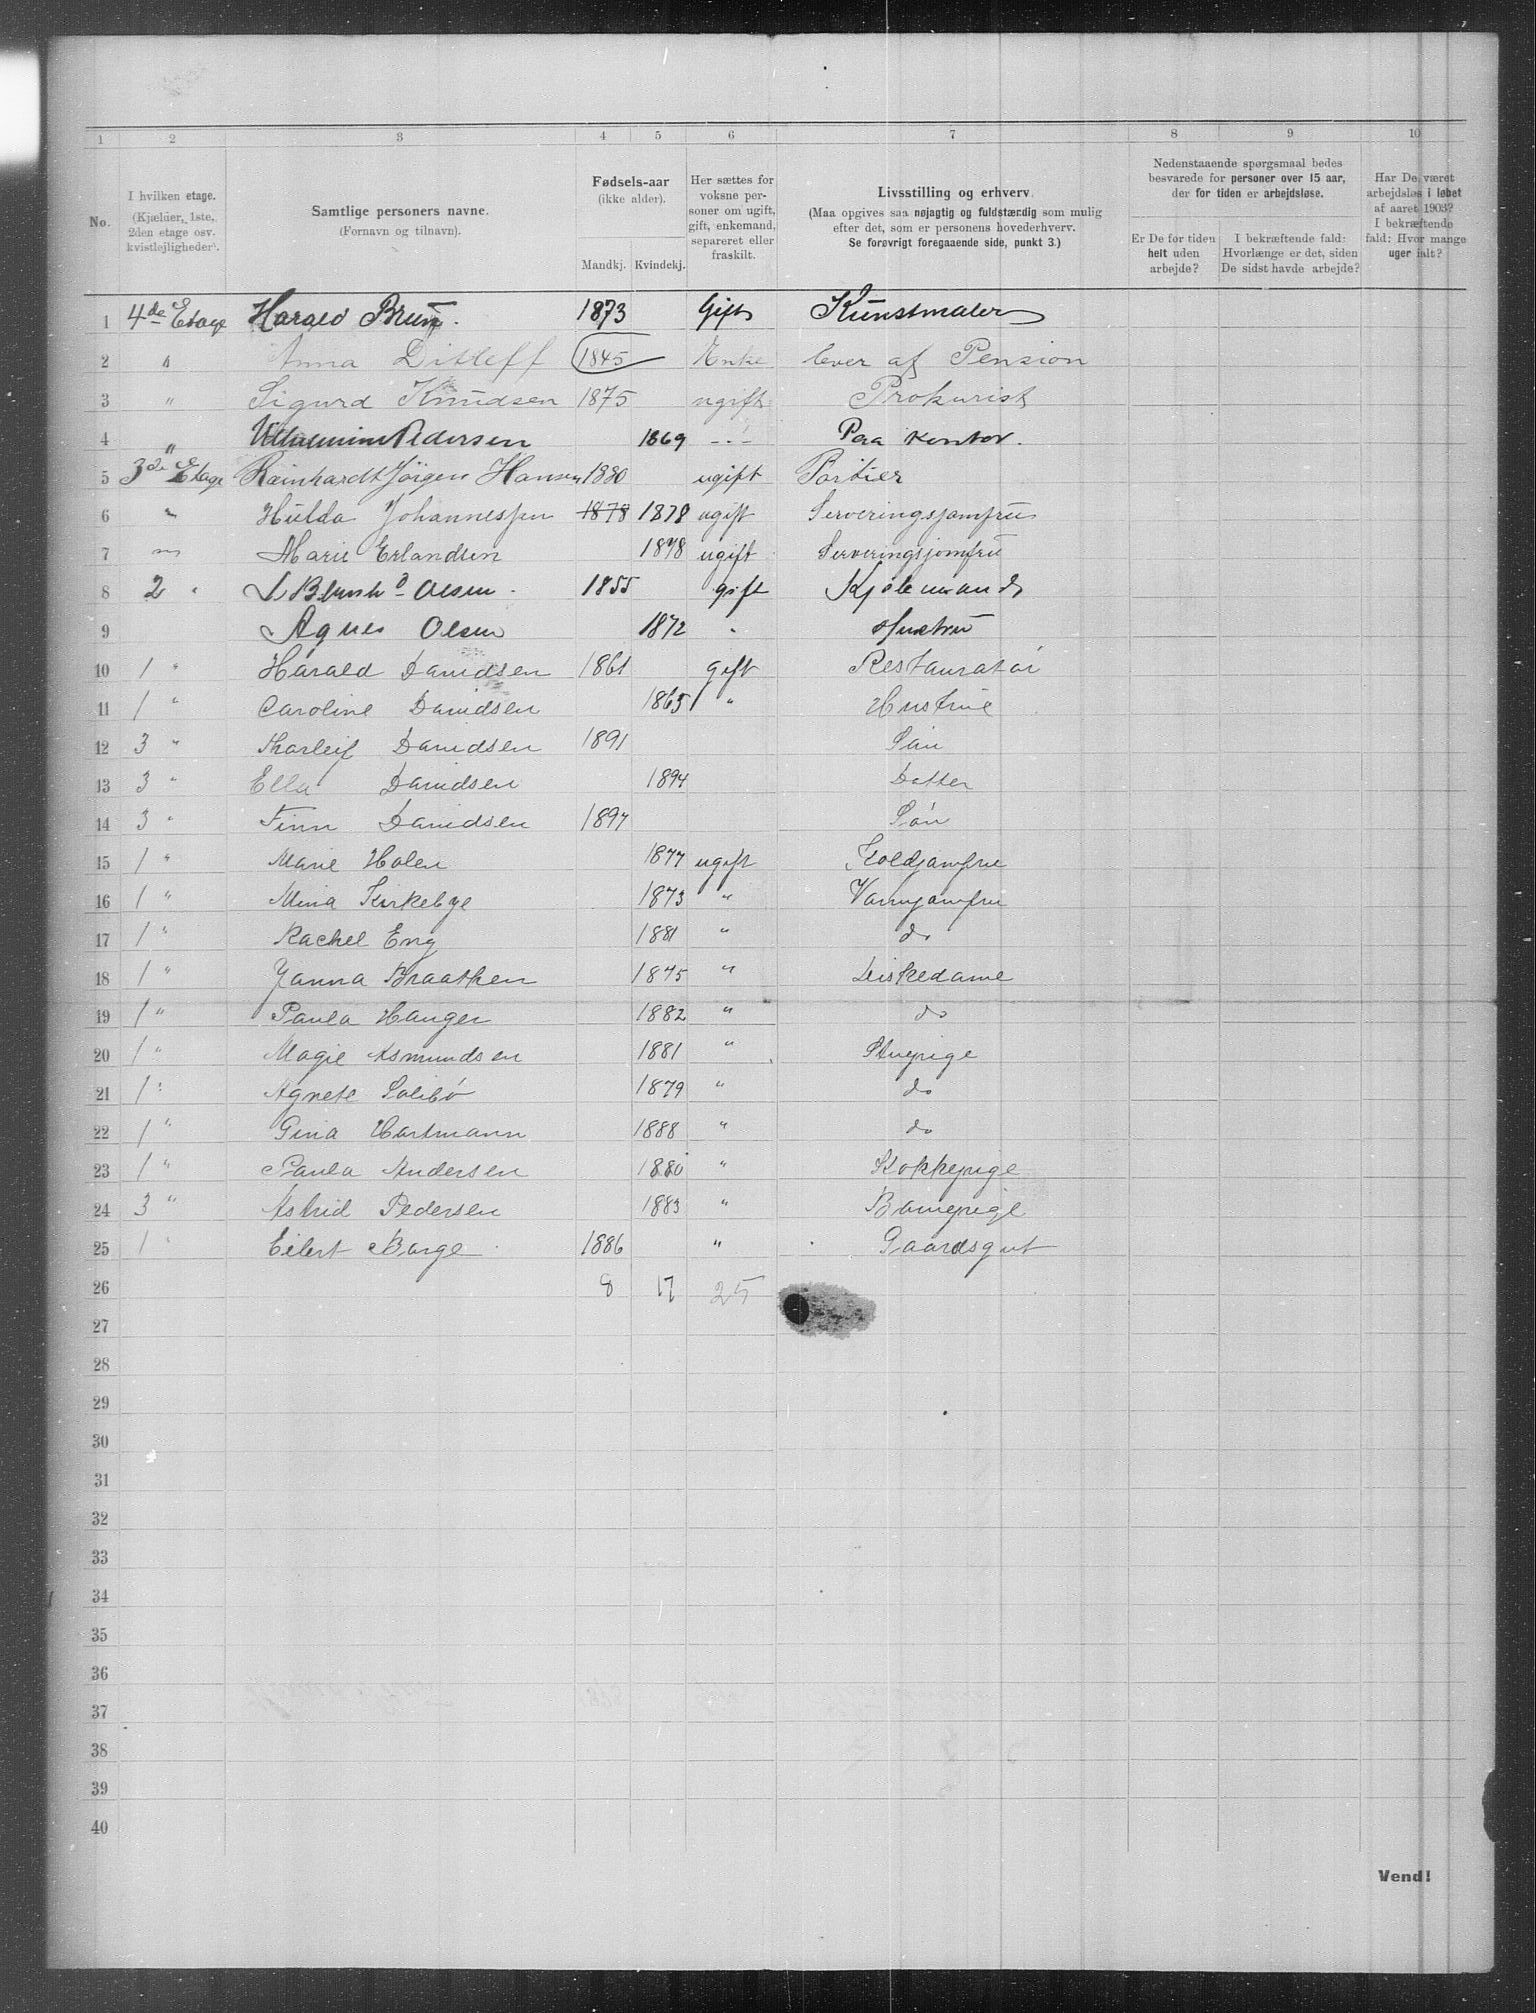 1 2 3 4 5 6 7 8 9 10
No.
I hvilken etage.
(Kjælder, 1ste, 2den etage osv. kvistlejligheder).
Samtlige personers navne.
(Fornavn og tilnavn).
Fødsels-aar
(ikke alder).
Mandkj. Kvindekj.
Her sættes for voksne personer om ugift, gift, enkemand, separeret eller fraskilt.
Livsstilling og erhverv.
(Maa opgives saa nøjagtig og fuldstændig som mulig efter det, som er personens hovederhverv.
Se forøvrigt foregaaende side, punkt 3.)
Nedenstaaende spørgsmaal bedes besvarede for personer over 15 aar, der for tiden er arbejdsløse.
Er De for tiden helt uden arbejde?
I bekræftende fald: Hvorlænge er det, siden De sidst havde arbejde?
Har De været arbejdsløs i løbet af aaret 1903?
I bekræftende fald: Hvor mange uger ialt?
1 4de Etage Harald Brun. 1873 Gift Kunstmaler
2 " Anna Ditleff 1845 Enke lever af Pension
3 " Sigurd Knudsen 1875 ugift Prokurist
4 " Pedersen 1869 -"- Paa Kontor.
5 3de Etage Reinhardt Jörgen Hansen 1880 ugift Portier
6 " Hulda Johannessen 1878 1878 ugift Serveringsjomfru
7 " Marie Erlandsen 1878 ugift Serveringsjomfru
8 2 " Olsen 1855 gift Kjøbmand
9 Agnes Olsen 1872 " Hustru
10 1 " Harald Davidsen 1861 gift Restauratør
11 1 " Caroline Davidsen 1865 " Hustrue
12 3 " Thorleif Davidsen 1891 Søn
13 3 " Ella Davidsen 1894 Datter
14 3 " Finn Davidsen 1897 Søn
15 1 " Marie Holen 1877 ugift Koldjomfru
16 1 " Mina Kirkebye 1873 " Varmjomfru
17 1 " Rachel Eng 1881 " do
18 1 " Janna Braathen 1875 " Diskedame
19 1 " Paula Hauger 1882 " do
20 1 " Magie Asmundsen 1881 " Stuepige
21 1 " Agnete Solibø 1879 " do
22 1 " Gina Hartmann 1888 " do
23 1 " Paula Andersen 1880 " Kokkepige
24 3 " Astrid Pedersen 1883 " Barnepige
25 1 " Eilert Borge 1886 " Gaardsgut
26 8 17 25
27
28
29
30
31
32
33
34
35
36
37
38
39
40
Vend!